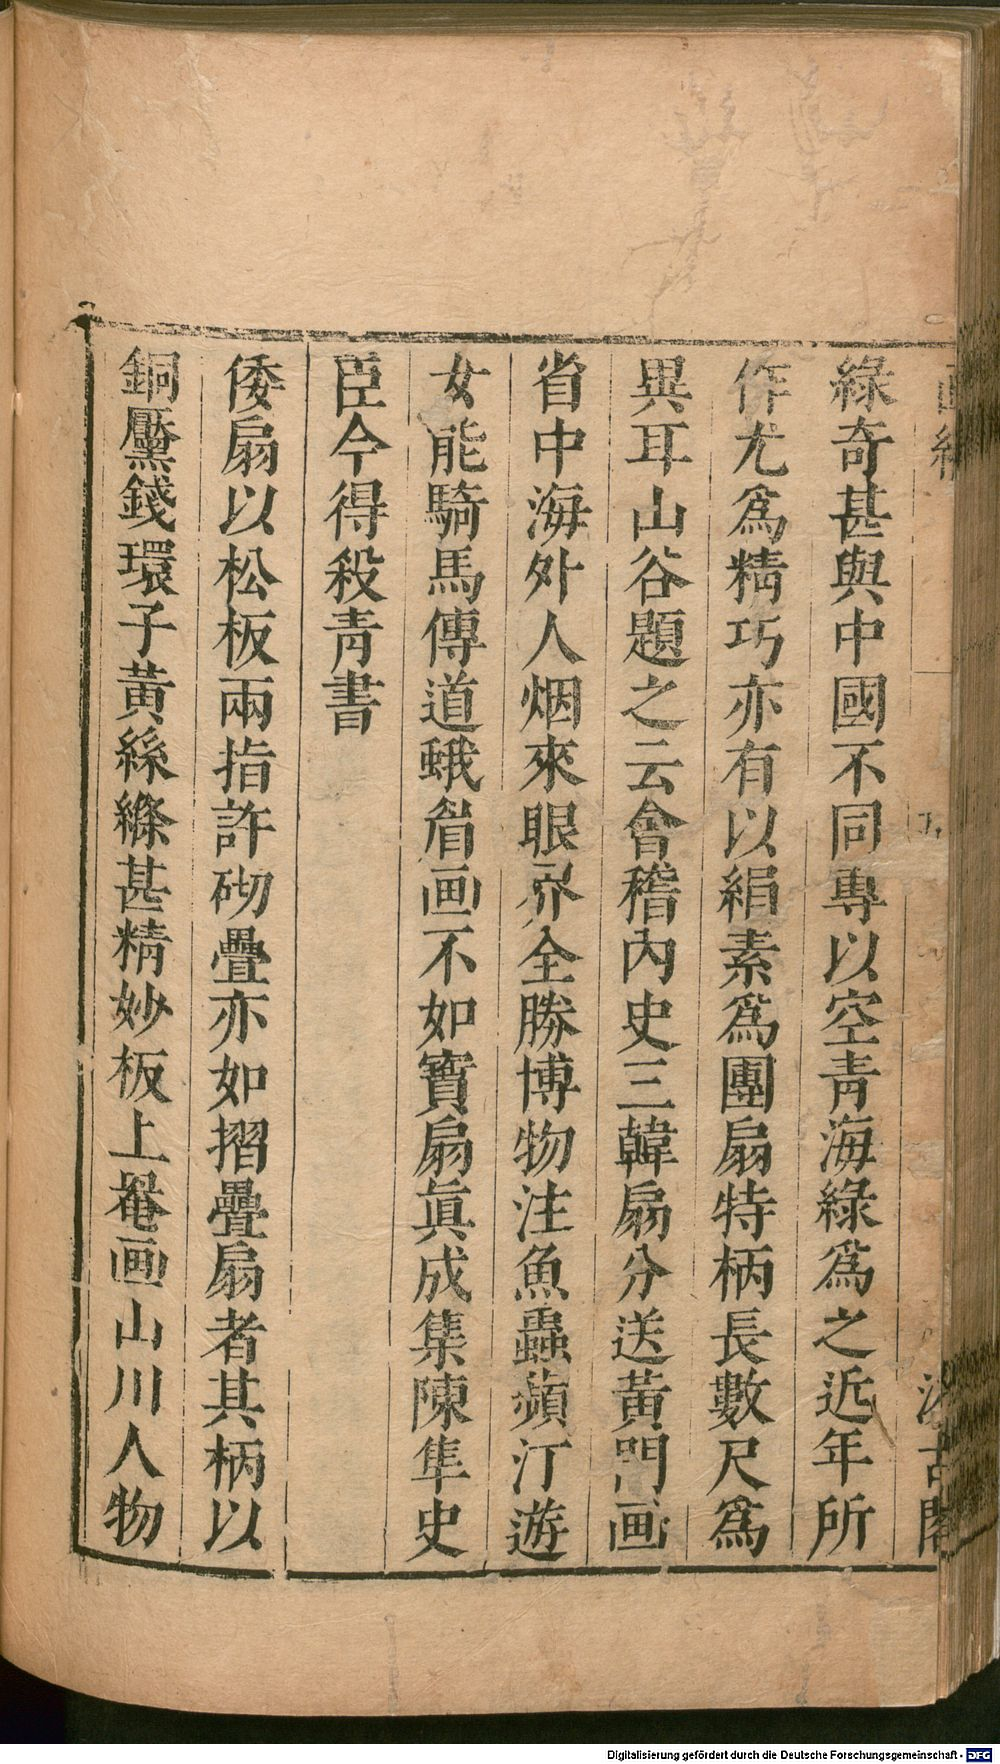 綠奇甚與中國不同專以空青海綠爲之近年所
作尤爲精巧亦有以絹素爲團扇特柄長數尺爲
異耳山谷題之云會稽內史三韓扇分送黃門画
省中海外人烟來眼界全勝博物注魚蟲蘋汀遊
女能騎馬傳道蛾眉画不如寶扇眞成集陳隼史
臣今得殺青書
倭扇以松板兩指許砌疊亦如摺疊扇者其柄以
銅黶錢環子黃絲縧甚精妙板上罨画山川人物
Digitalisierung gefördert durch die Deutsche Forschungsgemeinschaft - DFG